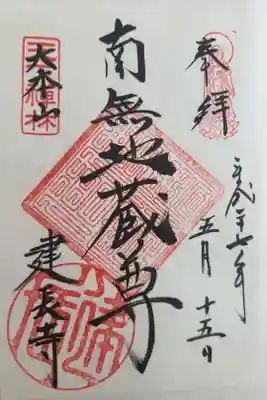 奉拝
平成二十七年
五月十五日
南無地蔵尊
大本山
建長寺